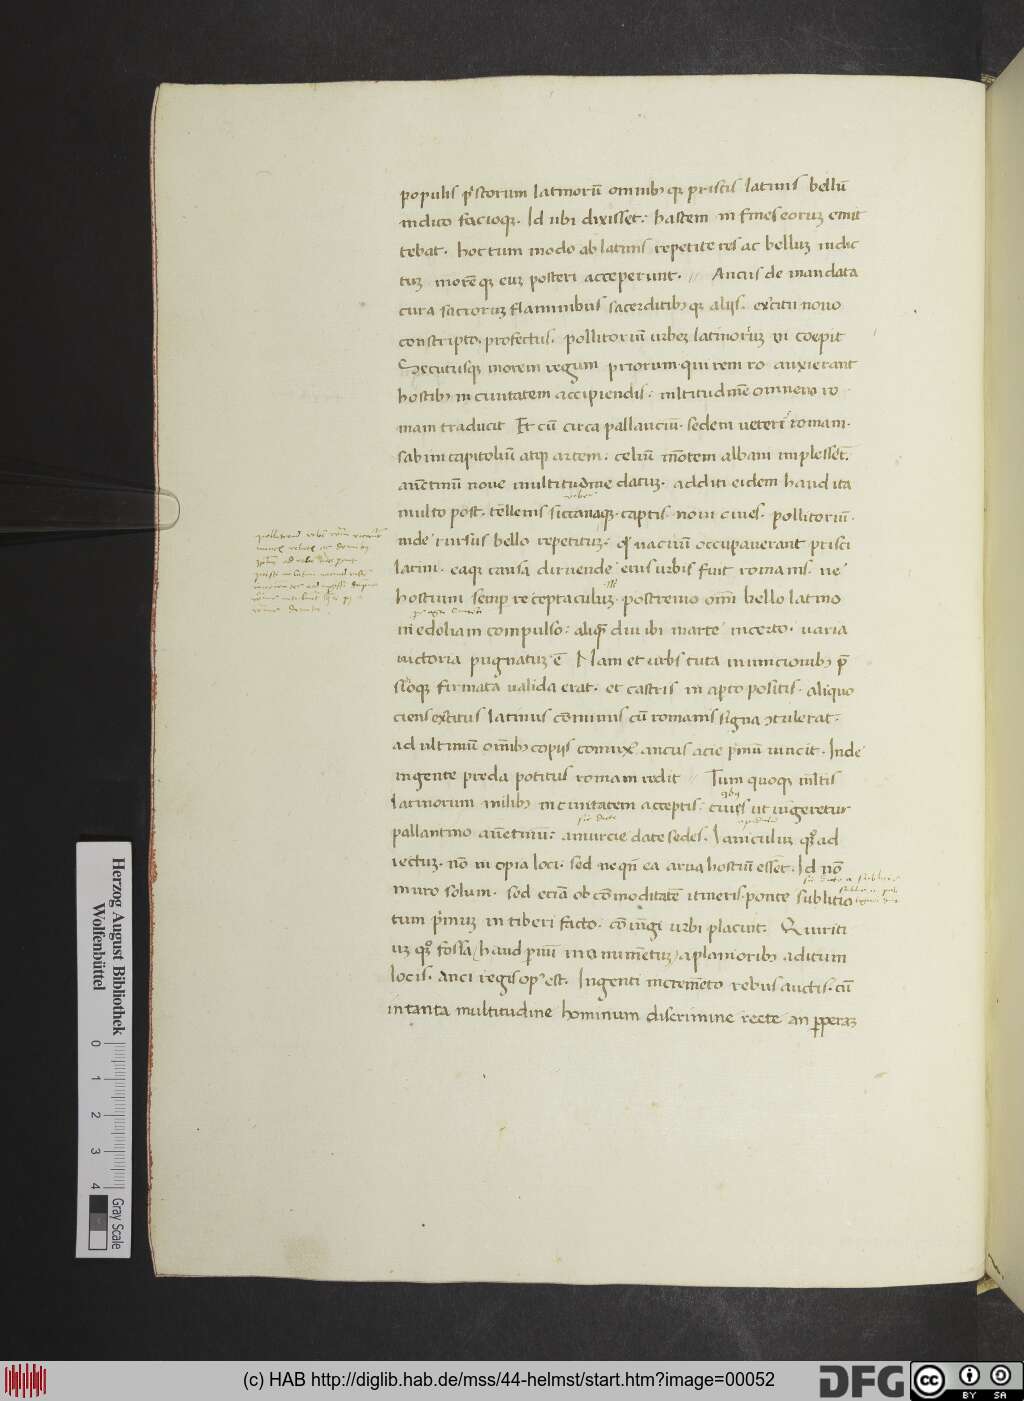 populis p̾scorum latinorū omnibꝫ qꝫ priscis latinis bellū
indico facioqꝫ. Id ubi dixisset: hastem in fines eoruꝫ emit
tebat. hoc tum modo ab latinis repetite res ac belluꝫ indic
tuꝫ morēqꝫ euꝫ posteri acceperunt. // Ancus demandata
cura sacroruꝫ flaminibus sacerdotibꝫ qꝫ alijs. exercitu nouo
conscripto. profectus. pollitoriū urbeꝫ latinoruꝫ vi coepit
Secutusqꝫ morem regum priorum qui rem ro auxierant
hostibꝫ in ciuitatem accipiendis: mltitudinē omnem ro
mam traducit Et cū circa pallanciū. sedem ueterū romani.
sabini capitoliū atqꝫ arcem: celiū mōtem albani implessēt.
auētinū noue multitudine datuꝫ. additi eidem haud ita
multo post. tellenis ficcanaqꝫ. captis. noui ciues. pollitoriū.
inde rursus bello repetituꝫ. qd uacuū occupauerant prisci
latini. eaqꝫ causa diruende eius urbis fuit romanis. ne
hostium semp receptaculuꝫ. postremo omī bello latino
medoliam compulso: aliqdiu ibi marte incerto. uaria
uictoria pugnatuꝫ ē Nam et urbs tuta municionibꝫ p̄
sidioqꝫ firmata ualida erat. et castris in apto positis. aliquo
ciens exercitus latinus cōminus cū romanis signa ꝯtulerat.
ad ultimū omībꝫ copijs comixꝰ ancus acie p̾mū uincit. Inde
ingente preda potitus romam redit // Tum quoqꝫ mltis
latinorum milibꝫ in ciuitatem acceptis: quibꝫ ut iungeretur
pallantino auētinū: amurcie date sedes. Ianiculuꝫ qꝫ ad
iectuꝫ. nō in opia loci. sed neqn̄ ea arua hostiū essēt. Id nō
muro solum. sed eciā ob cōmoditatē itineris. ponte sublitio
tum p̾muꝫ in tiberi facto. cōiungi urbi placuit. Quiriti
uꝫ qꝫ fossa haud p̾uū mommētuꝫ aplanioribꝫ aditum
locis. Anci regis opꝰ est. Ingenti incremēto rebus auctis. cū
in tanta multitudine hominum discrimine recte an pperaꝫ
Herzog August Bibliothek
Wolfenbüttel
0 1 2 3 4
Gray Scale
(c) HAB http://diglib.hab.de/mss/44-helmst/start.htm?image=00052
DFG
cc BY SA